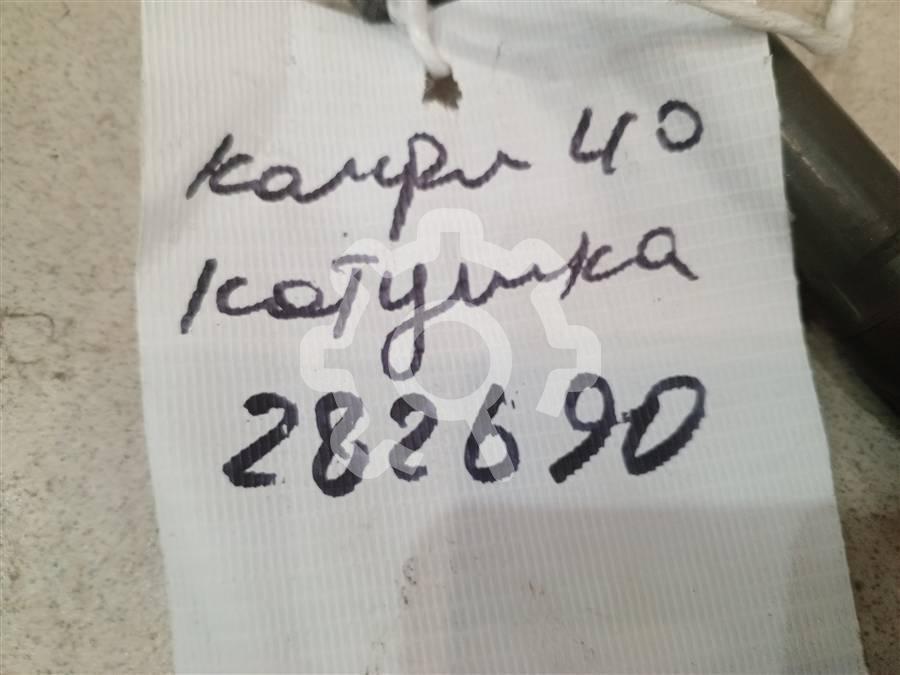 камри 40
катушка
282690